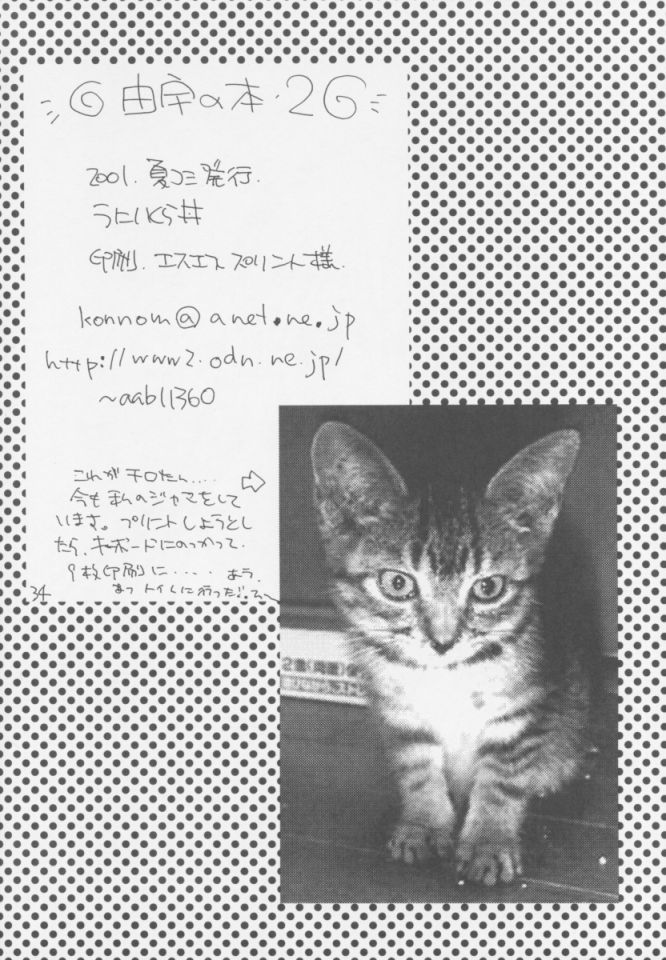 由宇の本・2
2001. 夏コミ発行.
印刷. エスエスプリント様.
konnom@anet.ne.jp
http://www2.odn.ne.jp/
~aab11360
これがチロたん....
今もまんのジャマをして
います。プリントしようとし
たら、キーボードにのっかって.
9枚印刷に.... あう.
あっ トイレに行った
34
2